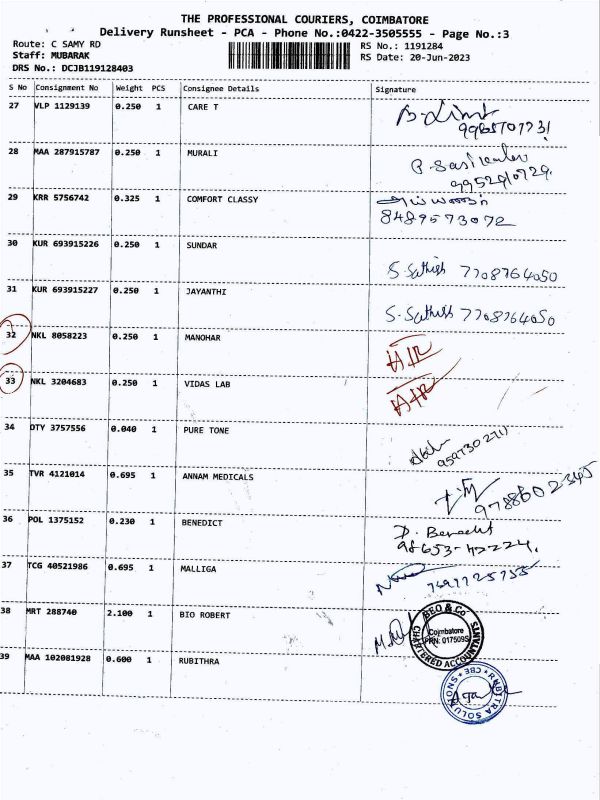 THE PROFESSIONAL COURIERS, COIMBATORE
Delivery Runsheet - PCA - Phone No.:0422-3505555 - Page No.:3
Route: C SAMY RD RS No.: 1191284
Staff: MUBARAK RS Date: 20-Jun-2023
DRS No.: DCJB119128403
S No Consignment No Weight PCS Consignee Details Signature
27 VLP 1129139 0.250 1 CARE T
28 MAA 287915787 0.250 1 MURALI
29 KRR 5756742 0.325 1 COMFORT CLASSY
8489573072
30 KUR 693915226 0.250 1 SUNDAR S. Sathish 7708764050
31 KUR 693915227 0.250 1 JAYANTHI S. Sathish 7708764050
32 NKL 8058223 0.250 1 MANOHAR
33 NKL 3204683 0.250 1 VIDAS LAB
34 DTY 3757556 0.040 1 PURE TONE
35 TVR 4121014 0.695 1 ANNAM MEDICALS
9788602345
36 POL 1375152 0.230 1 BENEDICT
98653-42224.
37 TCG 40521986 0.695 1 MALLIGA
38 MRT 288740 2.100 1 BIO ROBERT
BEO & Co
Coimbatore
FRN: 017509S
CHARTERED ACCOUNTANTS
39 MAA 102081928 0.600 1 RUBITHRA
CBE